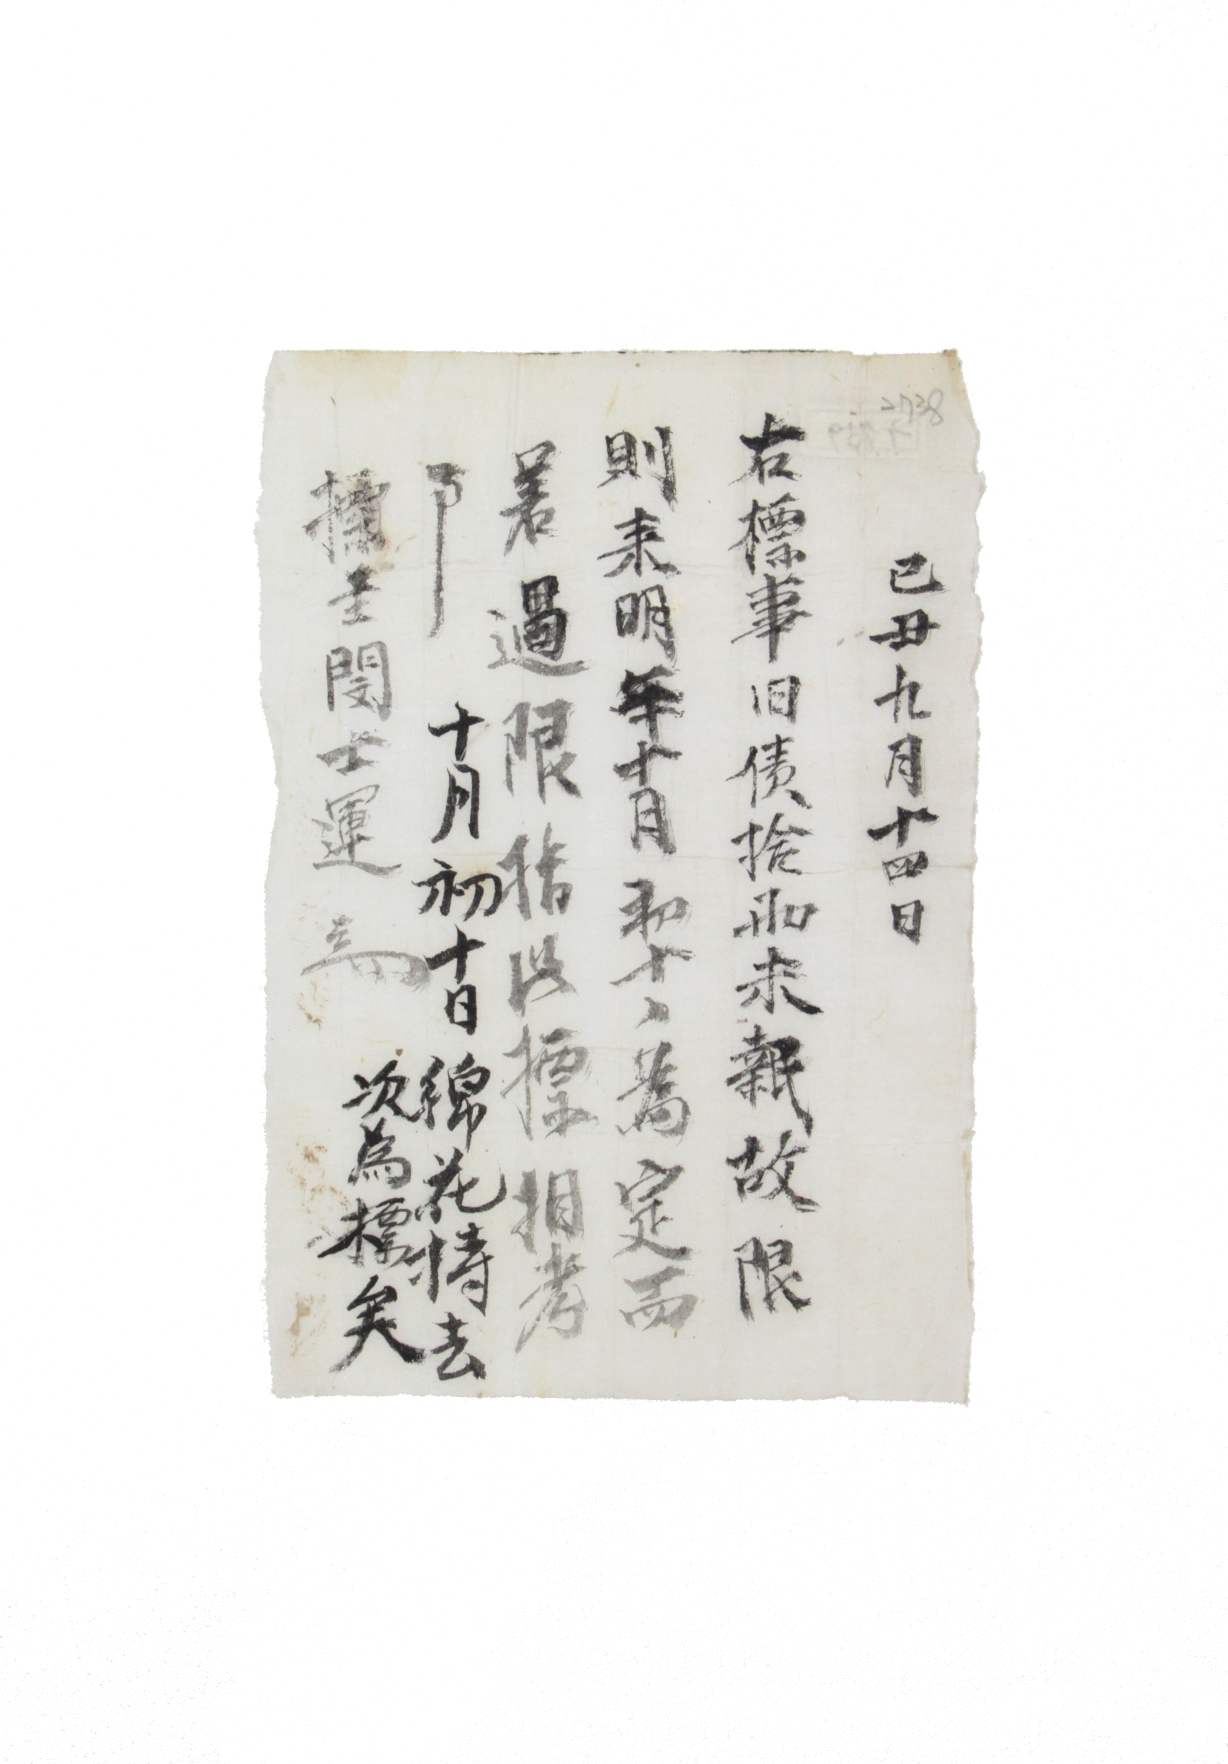 2738
己丑九月十四日
右標事旧債拾兩未報故限
則来明年十月初十日為定而
若過限指以標相考
事
十月初十日綿花持去
次為標矣
標主閔士運